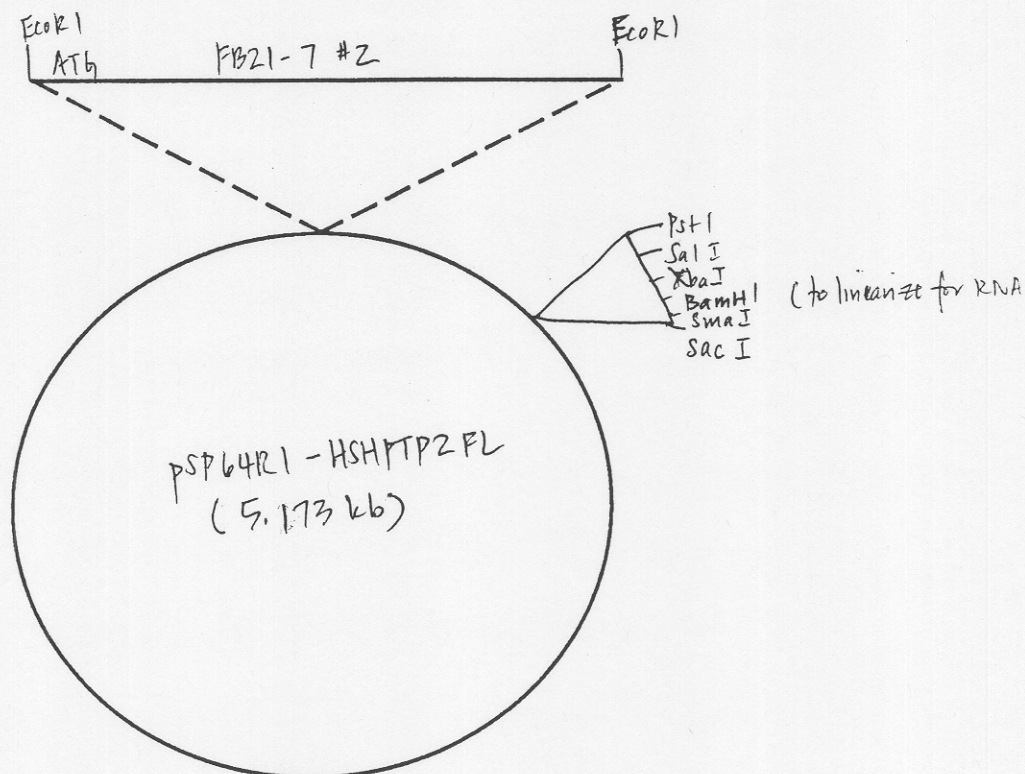 EcoRI
EcoRI
ATG
FB21-7 #2
PstI
Sal I
XbaI
BamHI
(to linearize for RNA
SmaI
Sac I
pSP64R1-HSHPTP2FL
(5.173 kb)